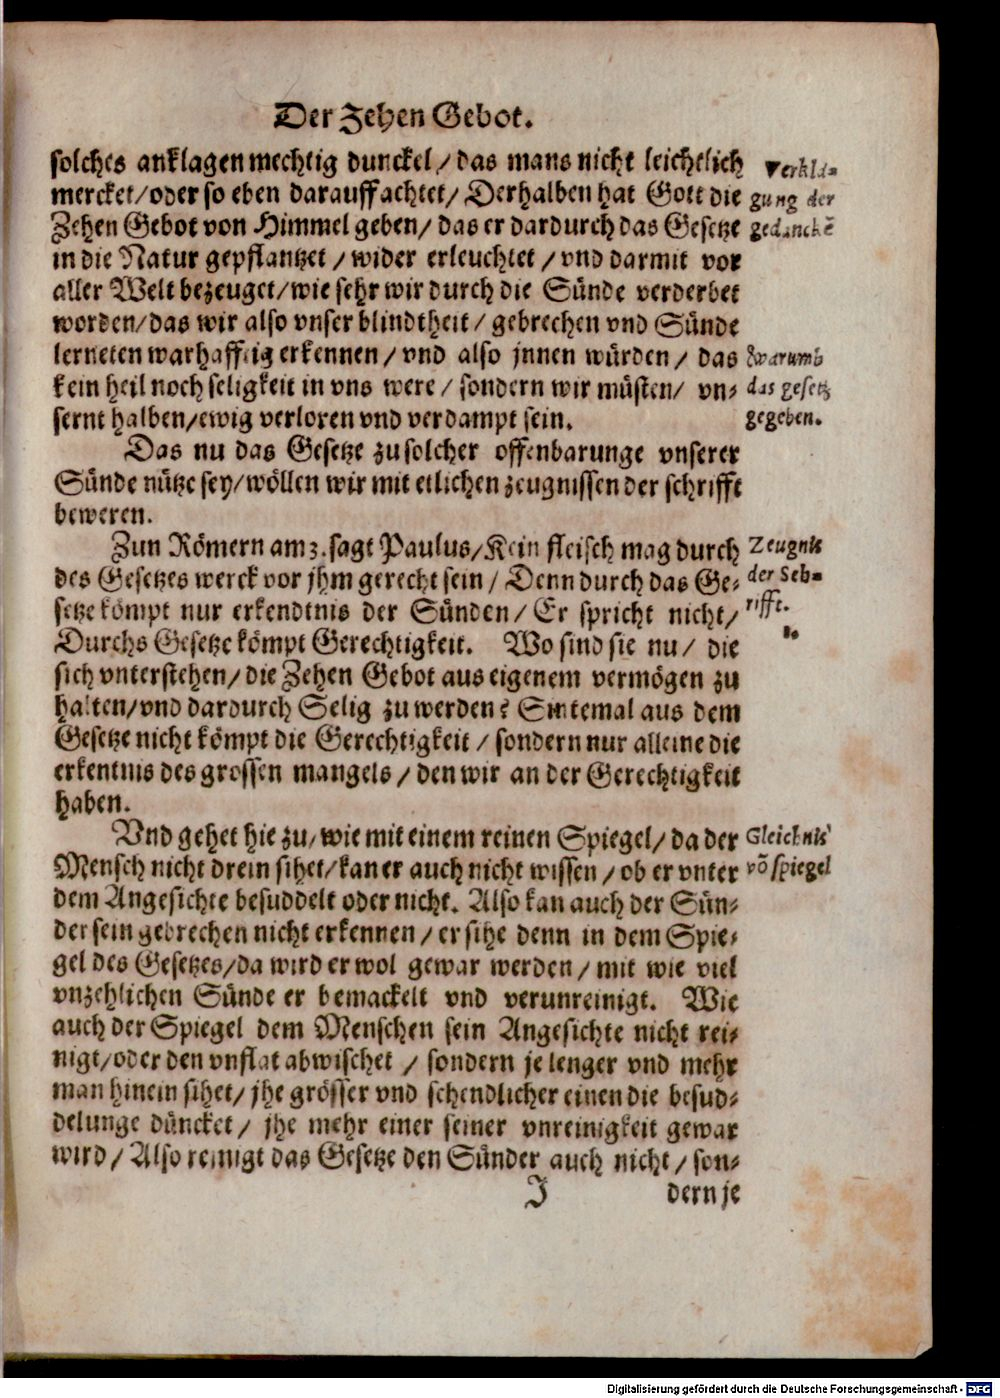 Der Zehen Gebot.
solches anklagen mechtig dunckel / das mans nicht leichtlich
mercket / oder so eben darauff achtet / Derhalben hat Gott die
Zehen Gebot von Himmel geben / das er dardurch das Gesetze
in die Natur gepflantzet / wider erleuchtet / vnd darmit vor
aller Welt bezeuget / wie sehr wir durch die Sünde verderbet
worden / das wir also vnser blindtheit / gebrechen vnd Sünde
lerneten warhafftig erkennen / vnd also jnnen würden / das
kein heil noch seligkeit in vns were / sondern wir müsten / vn-
sernt halben / ewig verloren vnd verdampt sein.
Das nu das Gesetze zu solcher offenbarunge vnserer
Sünde nütze sey / wöllen wir mit etlichen zeugnissen der schrifft
beweren.
Zun Römern am 3. sagt Paulus / Kein fleisch mag durch
des Gesetzes werck vor jhm gerecht sein / Denn durch das Ge-
setze kömpt nur erkendtnis der Sünden / Er spricht nicht /
Durchs Gesetze kömpt Gerechtigkeit. Wo sind sie nu / die
sich vnterstehen / die Zehen Gebot aus eigenem vermögen zu
halten / vnd dardurch Selig zu werden? Sintemal aus dem
Gesetze nicht kömpt die Gerechtigkeit / sondern nur alleine die
erkentnis des grossen mangels / den wir an der Gerechtigkeit
haben.
Vnd gehet hie zu / wie mit einem reinen Spiegel / da der
Mensch nicht drein sihet / kan er auch nicht wissen / ob er vnter
dem Angesichte besuddelt oder nicht. Also kan auch der Sün-
der sein gebrechen nicht erkennen / er sihe denn in dem Spie-
gel des Gesetzes / da wird er wol gewar werden / mit wie viel
vnzehlichen Sünde er bemackelt vnd verunreinigt. Wie
auch der Spiegel dem Menschen sein Angesichte nicht rei-
nigt / oder den vnflat abwischet / sondern je lenger vnd mehr
man hinein sihet / jhe grösser vnd schendlicher einen die besud-
delunge düncket / jhe mehr einer seiner vnreinigkeit gewar
wird / Also reinigt das Gesetze den Sünder auch nicht / son-
J dern je
Verkla-
gung der
gedanckē
Warumb
das gesetz
gegeben.
Zeugnis
der Sch-
rifft.
1.
Gleichnis
vō spiegel
Digitalisierung gefördert durch die Deutsche Forschungsgemeinschaft - DFG